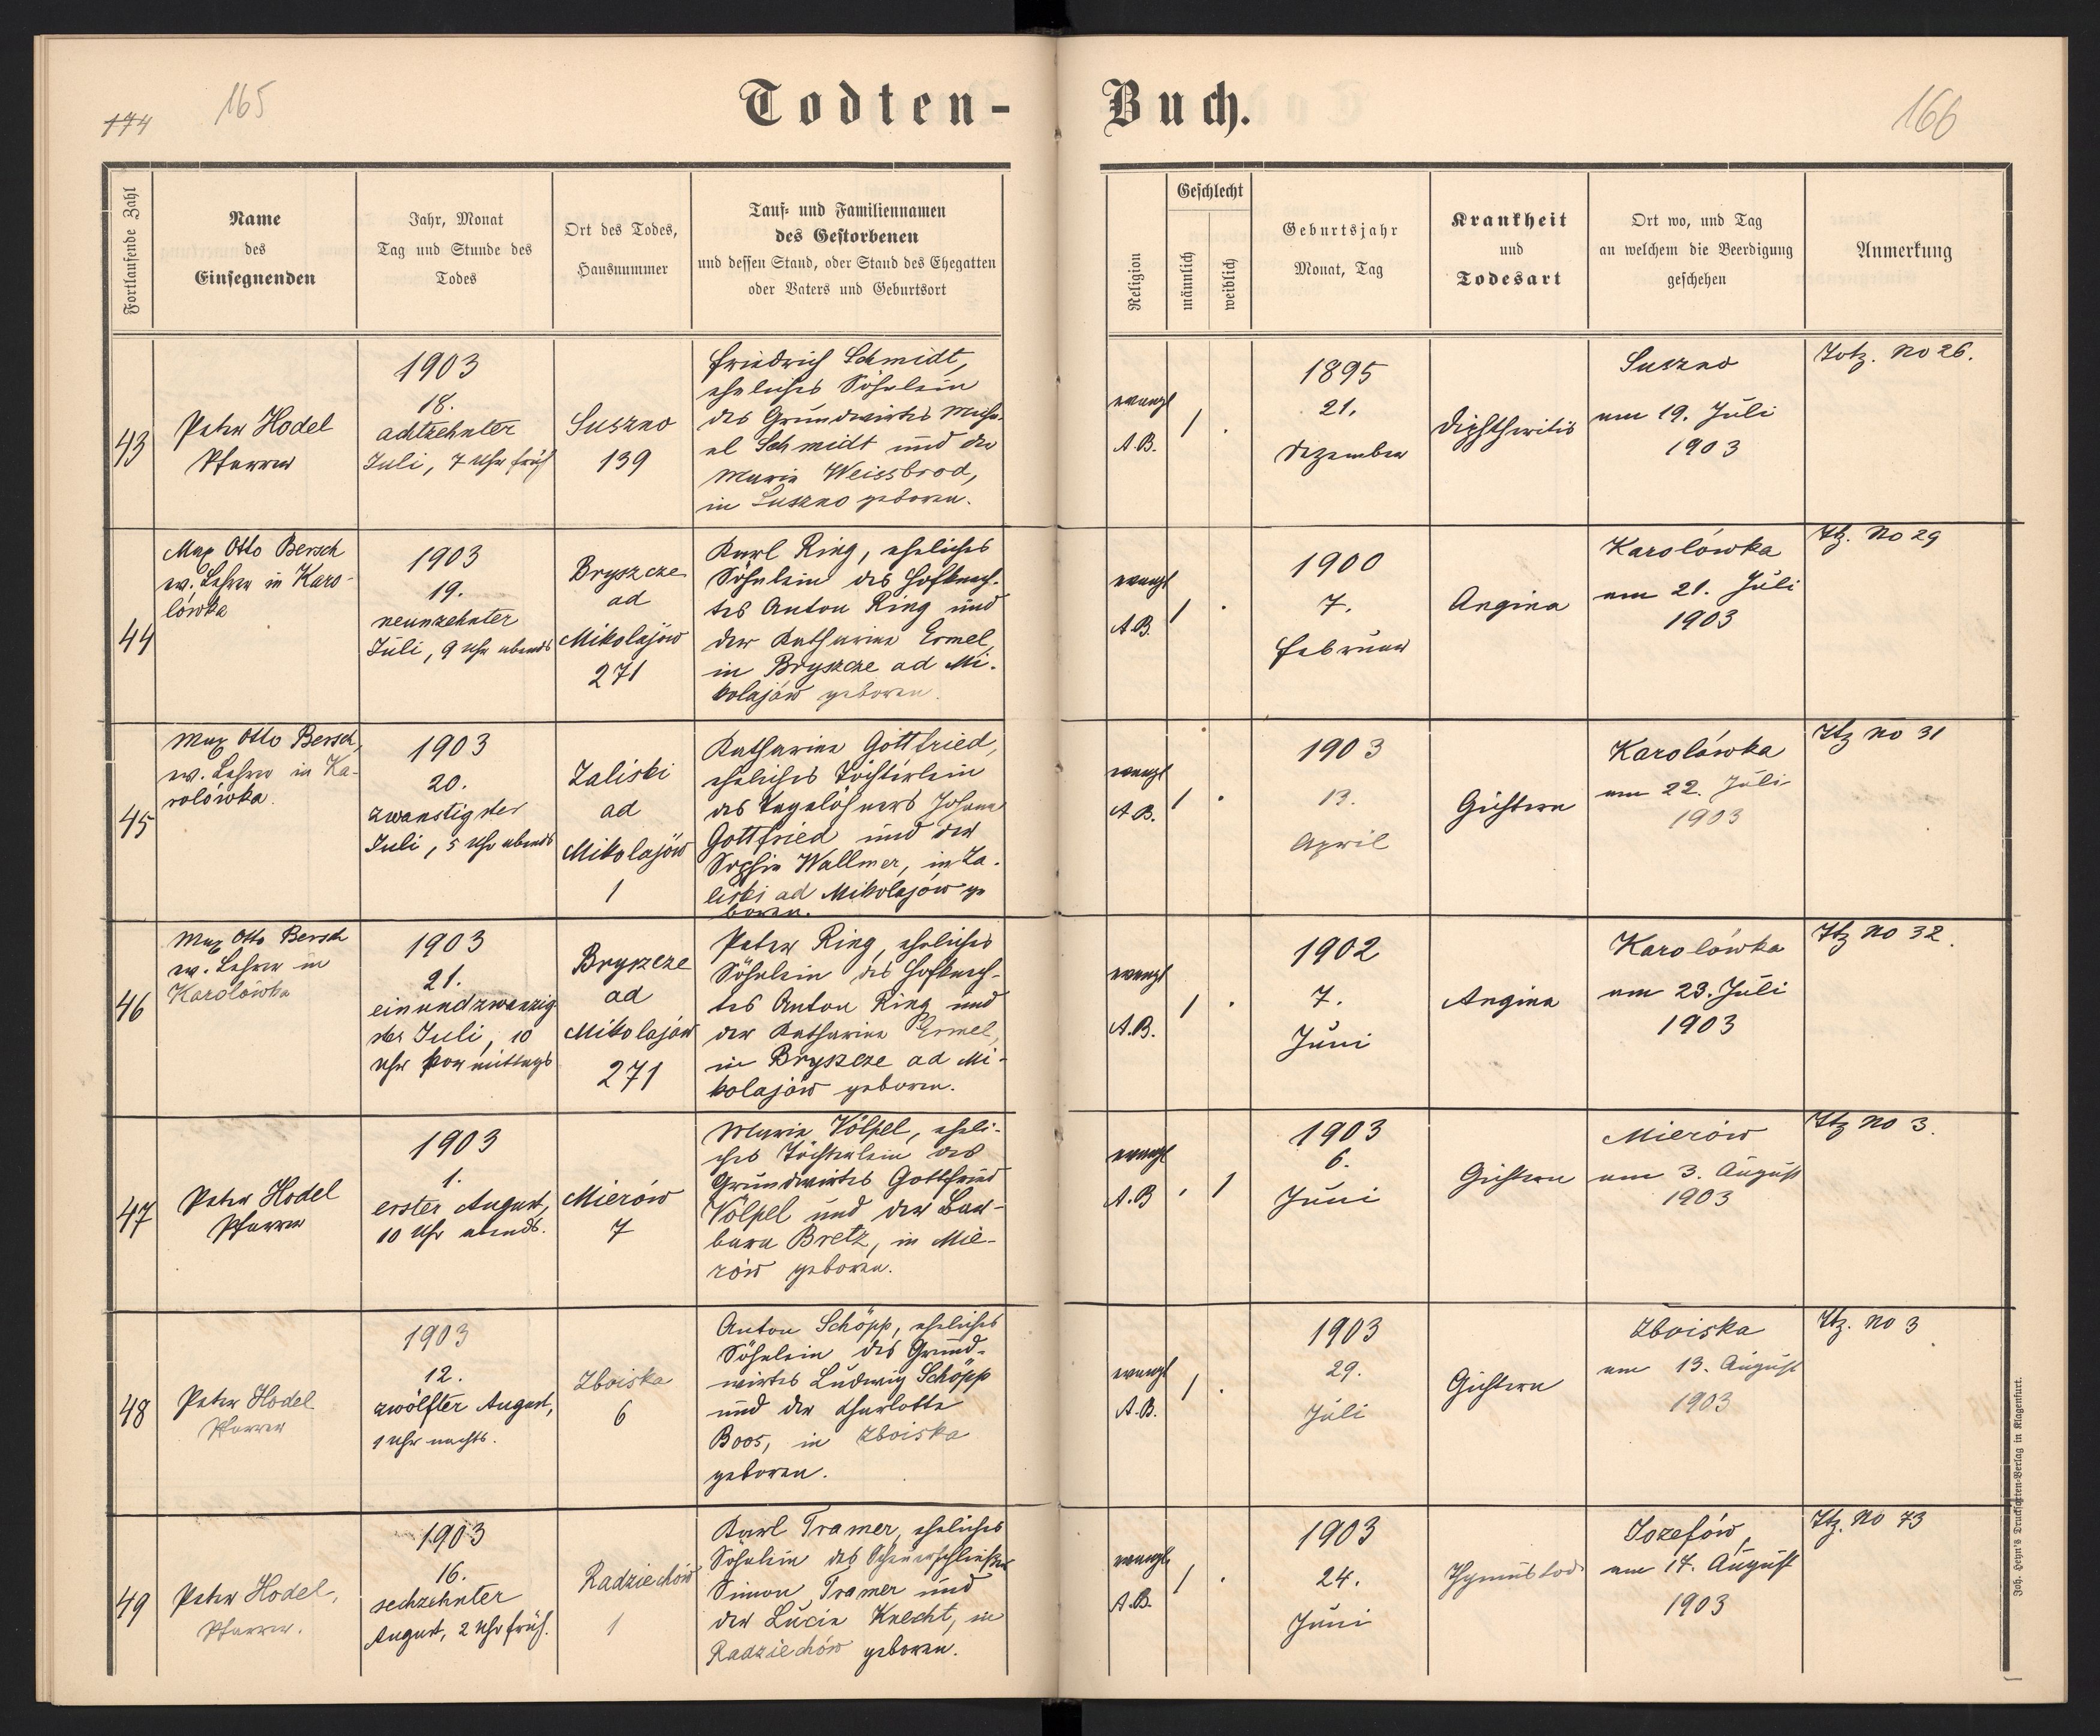 174
165
Todten-
Buch.
166
Fortlaufende Zahl
Name
des
Einsegnenden
Jahr, Monat
Tag und Stunde des
Todes
Ort des Todes,
Hausnummer
Tauf- und Familiennamen
des Gestorbenen
und dessen Stand, oder Stand des Ehegatten
oder Vaters und Geburtsort
Religion
Geschlecht
männlich
weiblich
Geburtsjahr
Monat, Tag
Krankheit
und
Todesart
Ort wo, und Tag
an welchem die Beerdigung
geschehen
Anmerkung
43
Peter Hodel
Pfarrer
1903
18.
achtzehnter
Juli, 7 Uhr früh
Suszno
139
Friedrich Schmidt,
eheliches Söhnlein
des Grundwirtes Micha-
el Schmidt und der
Maria Weissbrod,
in Suszno geboren.
evangl
A.B.
1
.
1895
21.
Dezember
Diphtheritis
Suszno
am 19. Juli
1903
Totz. No 26.
44
Max Otto Bersch
ev. Lehrer in Karo-
lówka
1903
19.
neunzehnter
Juli, 9 Uhr abends
Bryszcze
ad
Mikolajów
271
Karl Ring, eheliches
Söhnlein des Hofknech-
tes Anton Ring und
der Katharina Ermel,
in Bryszcze ad Mi-
kolajów geboren.
evangl
A.B.
1
.
1900
7.
Februar
Angina
Karolówka
am 21. Juli
1903
Ttz. No 29
45
Max Otto Bersch,
ev. Lehrer in Ka-
rolówka.
1903
20.
zwanzigster
Juli, 5 Uhr abends
Zaliski
ad
Mikolajów
1
Katharina Gottfried,
eheliches Töchterlein
des Tagelöhners Johann
Gottfried und der
Sophie Wallmer, in Za-
liski ad Mikolajów ge
boren.
evangl
A.B.
1
.
1903
13.
April
Gichtern
Karolówka
am 22. Juli
1903
Ttz No 31
46
Max Otto Bersch
ev. Lehrer in
Karolówka
1903
21.
einundzwanzig-
ster Juli, 10
Uhr vormittags
Bryszcze
ad
Mikolajów
271
Peter Ring, eheliches
Söhnlein des Hofknech-
tes Anton Ring und
der Katharina Ermel,
in Bryszcze ad Mi-
kolajów geboren.
evangl
A.B.
1
.
1902
7.
Juni
Angina
Karolówka
am 23. Juli
1903
Ttz No 32.
47
Peter Hodel
Pfarrer
1903
1.
erster August,
10 Uhr abends.
Mierów
7
Maria Völpel, eheli-
ches Töchterlein des
Grundwirtes Gottfried
Völpel und der Bar-
bara Bretz, in Mie-
rów geboren.
evangl
A.B
.
1
1903
6.
Juni
Gichtern
Mierów
am 3. August
1903
Ttz No 3.
48
Peter Hodel
Pfarrer
1903
12.
zwölfter August,
1 Uhr nachts.
Zboiska
6
Anton Schöpp, eheliches
Söhnlein des Grund-
wirtes Ludwig Schöpp
und der Charlotte
Boos, in Zboiska
geboren.
evangl
A.B.
1
.
1903
29.
Juli
Gichtern
Zboiska
am 13. August
1903
Ttz. No 3
49
Peter Hodel,
Pfarrer.
1903
16.
sechzehnter
August, 2 Uhr früh.
Radziechów
1
Karl Tramer, eheliches
Söhnlein des
Simon Tramer und
der Lucia Knecht, in
Radziechów geboren.
evangl
A.B.
1
.
1903
24.
Juni
Jozefów,
am 17. August
1903
Ttz. No 73
Joh. Heyn's Drucksorten-Verlag in Klagenfurt.